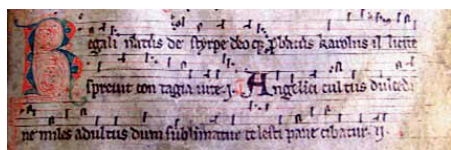 Regali natus de styrpe deoq; ꝓbatus karolus il licite
spreuit con tagia uite .i. Angelici cultus dulcedi
ne miles adultus dum sublimatur celesti pane cibatur .ii.